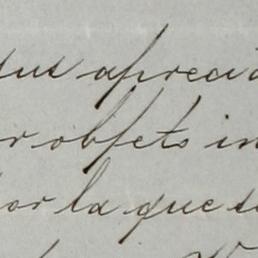 sus apreciá
r objets in
por la que s